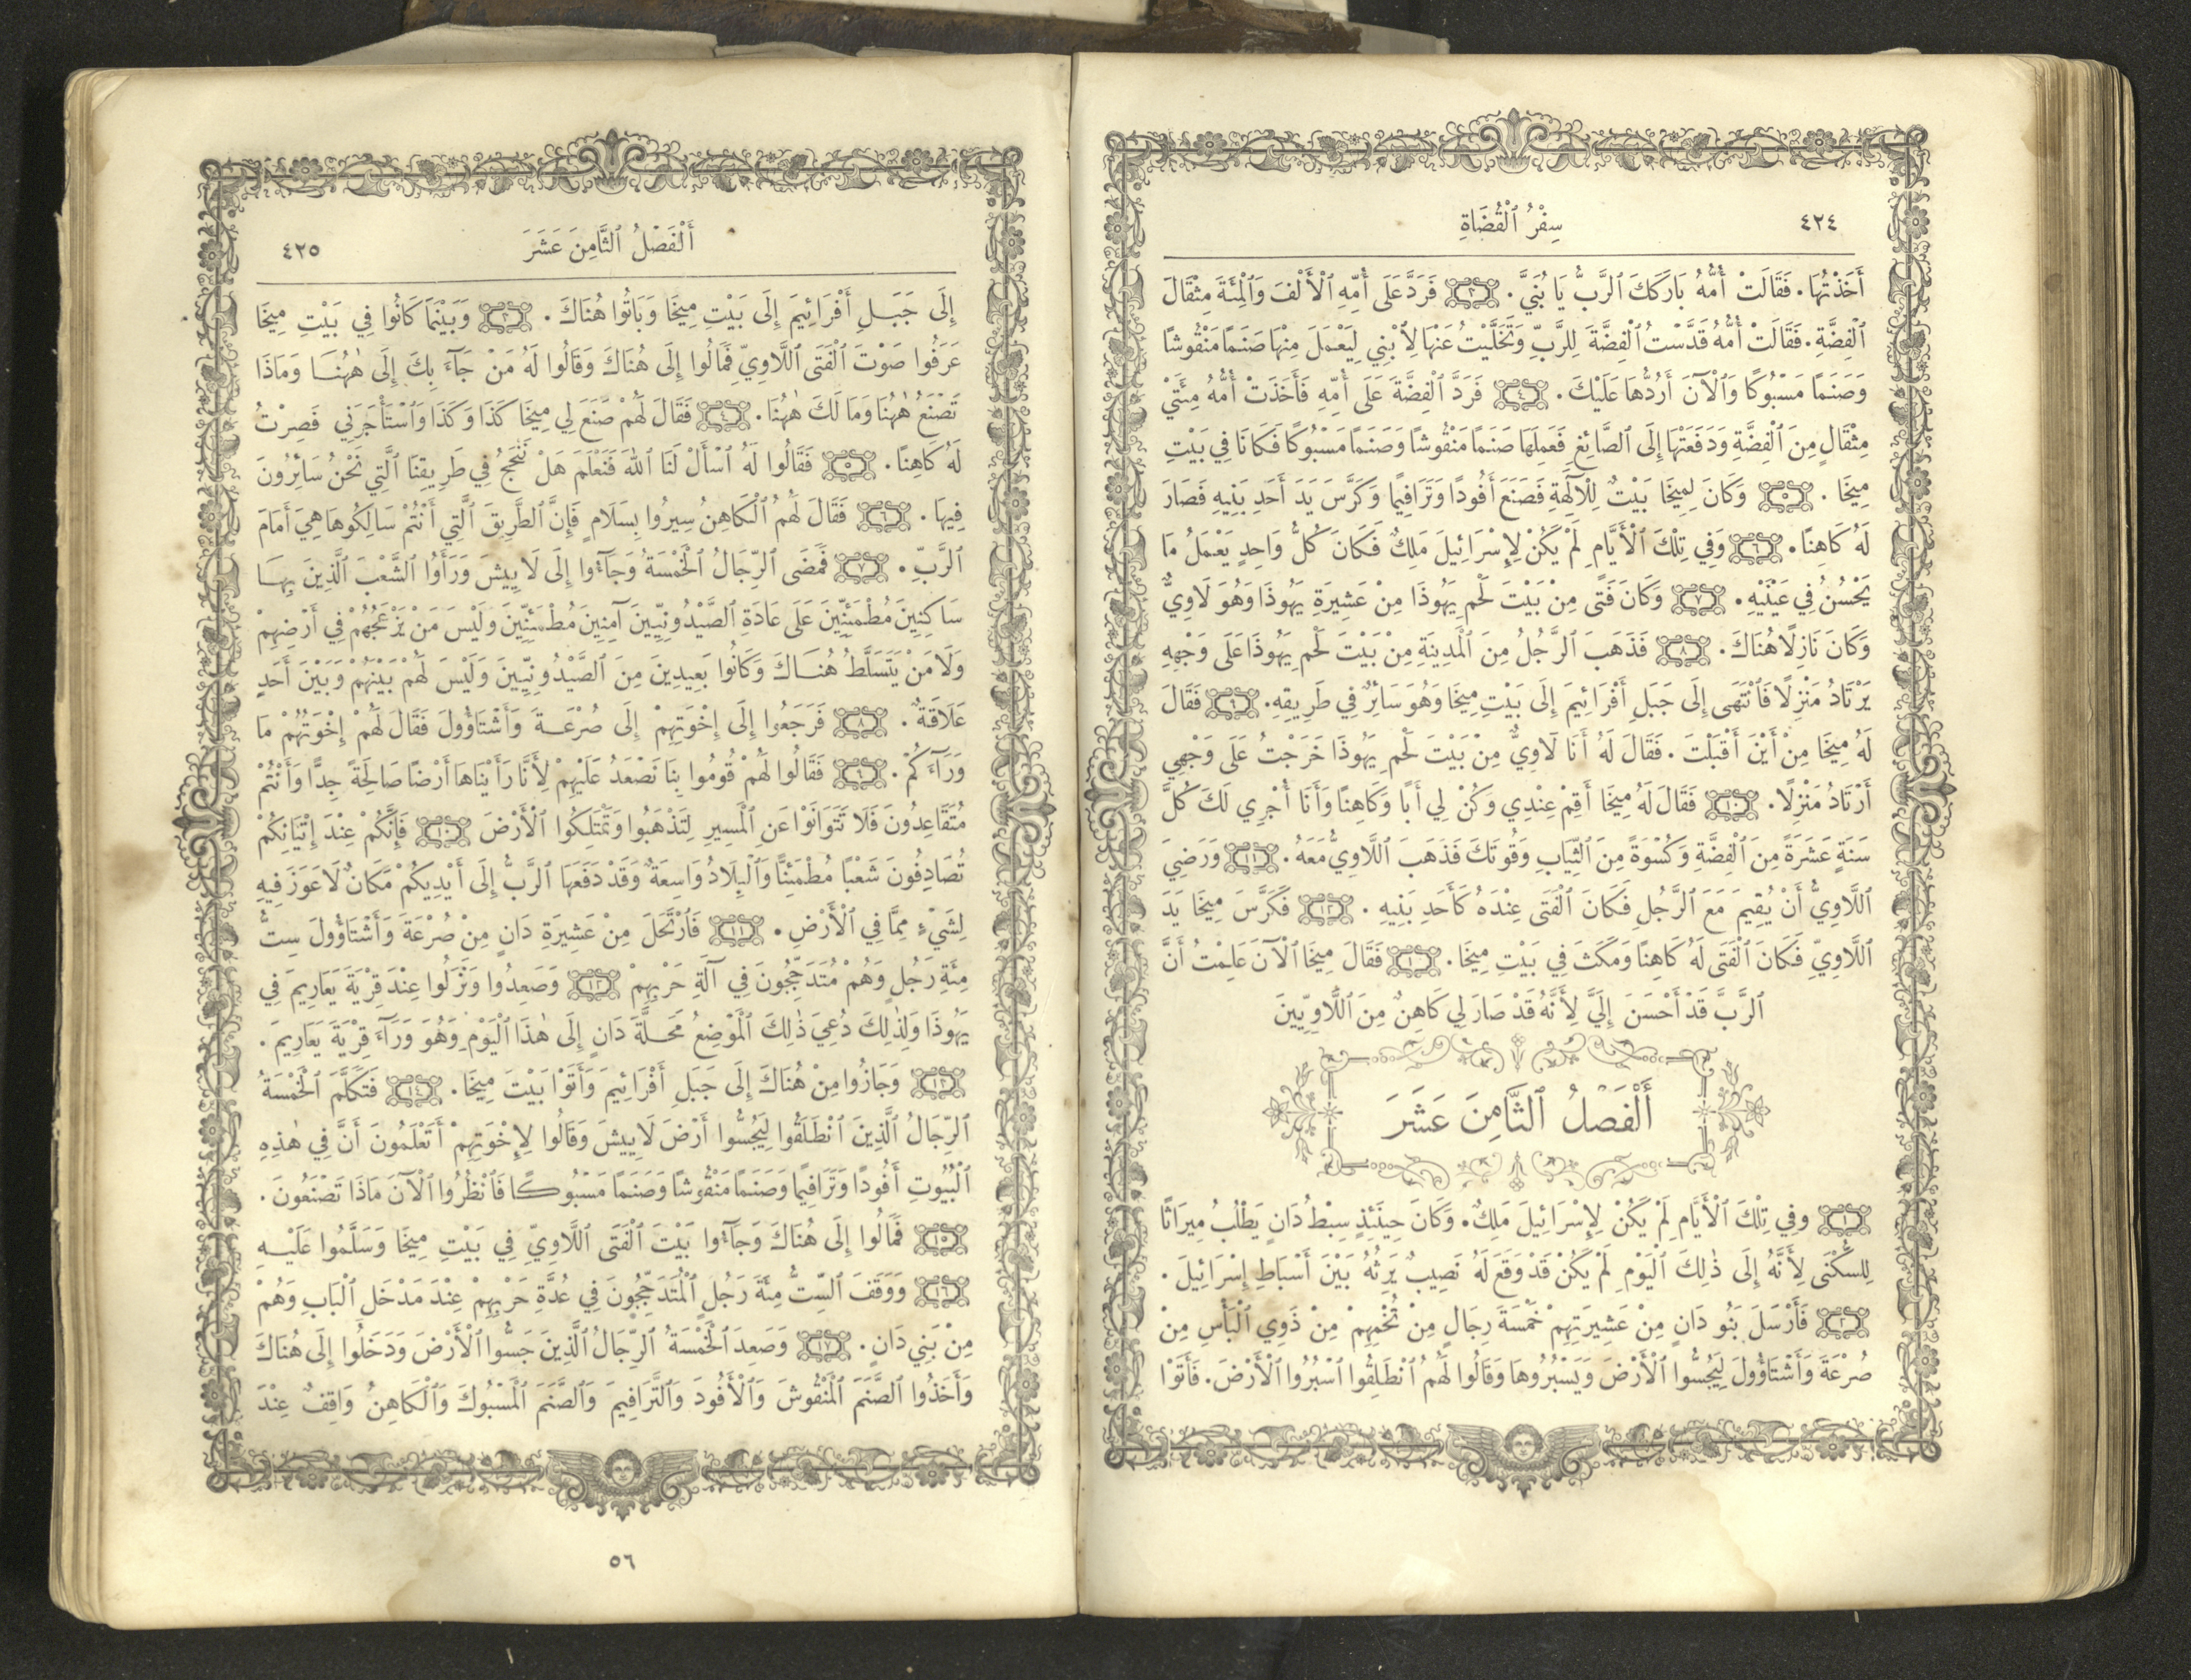 ٤٢٤
سِفْرُ ٱلْقُضَاةِ
أَخَذْتُهَا. فَقَالَتْ أُمُّهُ بَارَكَكَ ٱلرَّبُّ يَا بُنَيَّ. ٣ فَرَدَّ عَلَى أُمِّهِ ٱلْأَلْفَ وَٱلْمِئَةَ مِثْقَالَ
ٱلْفِضَّةِ. فَقَالَتْ أُمُّهُ قَدَّسْتُ ٱلْفِضَّةَ لِلرَّبِّ وَتَخَلَّيْتُ عَنْهَا لِٱبْنِي لِيَعْمَلَ مِنْهَا صَنَمًا مَنْقُوشًا
وَصَنَمًا مَسْبُوكًا وَٱلْآنَ أَرُدُّهَا عَلَيْكَ. ٤ فَرَدَّ ٱلْفِضَّةَ عَلَى أُمِّهِ فَأَخَذَتْ أُمُّهُ مِئَتَيْ
مِثْقَالٍ مِنَ ٱلْفِضَّةِ وَدَفَعَتْهَا إِلَى ٱلصَّائِغِ فَعَمِلَهَا صَنَمًا مَنْقُوشًا وَصَنَمًا مَسْبُوكًا فَكَانَا فِي بَيْتِ
مِيخَا. ٥ وَكَانَ لِمِيخَا بَيْتٌ لِلْآلِهَةِ فَصَنَعَ أَفُودًا وَتَرَافِيمًا وَكَرَّسَ يَدَ أَحَدِ بَنِيهِ فَصَارَ
لَهُ كَاهِنًا. ٦ وَفِي تِلْكَ ٱلْأَيَّامِ لَمْ يَكُنْ لِإِسْرَائِيلَ مَلِكٌ فَكَانَ كُلُّ وَاحِدٍ يَعْمَلُ مَا
يَحْسُنُ فِي عَيْنَيْهِ. ٧ وَكَانَ فَتًى مِنْ بَيْتَ لَحْمِ يَهُوذَا مِنْ عَشِيرَةِ يَهُوذَا وَهُوَ لَاوِيٌّ
وَكَانَ نَازِلًا هُنَاكَ. ٨ فَذَهَبَ ٱلرَّجُلُ مِنَ ٱلْمَدِينَةِ مِنْ بَيْتَ لَحْمِ يَهُوذَا عَلَى وَجْهِهِ
يَرْتَادُ مَنْزِلًا فَٱنْتَهَى إِلَى جَبَلِ أَفْرَائِيمَ إِلَى بَيْتِ مِيخَا وَهُوَ سَائِرٌ فِي طَرِيقِهِ. ٩ فَقَالَ
لَهُ مِيخَا مِنْ أَيْنَ أَقْبَلْتَ. فَقَالَ لَهُ أَنَا لَاوِيٌّ مِنْ بَيْتَ لَحْمِ يَهُوذَا خَرَجْتُ عَلَى وَجْهِي
أَرْتَادُ مَنْزِلًا. ١٠ فَقَالَ لَهُ مِيخَا أَقِمْ عِنْدِي وَكُنْ لِي أَبًا وَكَاهِنًا وَأَنَا أُجْرِي لَكَ كُلَّ
سَنَةٍ عَشَرَةً مِنَ ٱلْفِضَّةِ وَكُسْوَةً مِنَ ٱلثِّيَابِ وَقُوتَكَ فَذَهَبَ ٱللَّاوِيُّ مَعَهُ. ١١ وَرَضِيَ
ٱللَّاوِيُّ أَنْ يُقِيمَ مَعَ ٱلرَّجُلِ فَكَانَ ٱلْفَتَى عِنْدَهُ كَأَحَدِ بَنِيهِ. ١٢ فَكَرَّسَ مِيخَا يَدَ
ٱللَّاوِيِّ فَكَانَ ٱلْفَتَى لَهُ كَاهِنًا وَمَكَثَ فِي بَيْتِ مِيخَا. فَقَالَ مِيخَا ٱلْآنَ عَلِمْتُ أَنَّ
ٱلرَّبَّ قَدْ أَحْسَنَ إِلَيَّ لِأَنَّهُ قَدْ صَارَ لِي كَاهِنٌ مِنَ ٱللَّاوِيِّينَ
أَلْفَصْلُ ٱلثَّامِنَ عَشَرَ
١ وَفِي تِلْكَ ٱلْأَيَّامِ لَمْ يَكُنْ لِإِسْرَائِيلَ مَلِكٌ. وَكَانَ حِينَئِذٍ سِبْطُ دَانٍ يَطْلُبُ مِيرَاثًا
لِلسُّكْنَى لِأَنَّهُ إِلَى ذٰلِكَ ٱلْيَوْمِ لَمْ يَكُنْ قَدْ وَقَعَ لَهُ نَصِيبٌ يَرِثُهُ بَيْنَ أَسْبَاطِ إِسْرَائِيلَ.
٢ فَأَرْسَلَ بَنُو دَانٍ مِنْ عَشِيرَتِهِمْ خَمْسَةَ رِجَالٍ مِنْ تُخْمِهِمْ مِنْ ذَوِي ٱلْبَأْسِ مِنْ
صُرْعَةَ وَأَشْتَاؤُولَ لِيَجُسُّوا ٱلْأَرْضَ وَيَسْبُرُوهَا وَقَالُوا لَهُمُ ٱنْطَلِقُوا ٱسْبُرُوا ٱلْأَرْضَ. فَأَتَوْا
أَلْفَصْلُ ٱلثَّامِنَ عَشَرَ
٤٢٥
إِلَى جَبَلِ أَفْرَائِيمَ إِلَى بَيْتِ مِيخَا وَبَاتُوا هُنَاكَ. ٣ وَبَيْنَمَا كَانُوا فِي بَيْتِ مِيخَا
عَرَفُوا صَوْتَ ٱلْفَتَى ٱللَّاوِيِّ فَمَالُوا إِلَى هُنَاكَ وَقَالُوا لَهُ مَنْ جَآءَ بِكَ إِلَى هٰهُنَا وَمَاذَا
تَصْنَعُ هٰهُنَا وَمَا لَكَ هٰهُنَا. ٤ فَقَالَ لَهُمْ صَنَعَ لِي مِيخَا كَذَا وَكَذَا وَٱسْتَأْجَرَنِي فَصِرْتُ
لَهُ كَاهِنًا. ٥ فَقَالُوا لَهُ ٱسْأَلْ لَنَا ٱللهَ فَنَعْلَمَ هَلْ نَنْجَحُ فِي طَرِيقِنَا ٱلَّتِي نَحْنُ سَائِرُونَ
فِيهَا. ٦ فَقَالَ لَهُمُ ٱلْكَاهِنُ سِيرُوا بِسَلَامٍ فَإِنَّ ٱلطَّرِيقَ ٱلَّتِي أَنْتُمْ سَالِكُوهَا هِيَ أَمَامَ
ٱلرَّبِّ. ٧ فَمَضَى ٱلرِّجَالُ ٱلْخَمْسَةُ وَجَآءُوا إِلَى لَايِيشَ وَرَأَوُا ٱلشَّعْبَ ٱلَّذِينَ بِهَا
سَاكِنِينَ مُطْمَئِنِّينَ عَلَى عَادَةِ ٱلصَّيْدُونِيِّينَ آمِنِينَ مُطْمَئِنِّينَ وَلَيْسَ مَنْ يُزْعِجُهُمْ فِي أَرْضِهِمْ
وَلَا مَنْ يَتَسَلَّطُ هُنَاكَ وَكَانُوا بَعِيدِينَ مِنَ ٱلصَّيْدُونِيِّينَ وَلَيْسَ لَهُمْ بَيْنَهُمْ وَبَيْنَ أَحَدٍ
عَلَاقَةٌ. ٨ فَرَجَعُوا إِلَى إِخْوَتِهِمْ إِلَى صُرْعَةَ وَأَشْتَاؤُولَ فَقَالَ لَهُمْ إِخْوَتُهُمْ مَا
وَرَآءَكُمْ. ٩ فَقَالُوا لَهُمْ قُومُوا بِنَا نَصْعَدُ عَلَيْهِمْ لِأَنَّا رَأَيْنَاهَا أَرْضًا صَالِحَةً جِدًّا وَأَنْتُمْ
مُتَقَاعِدُونَ فَلَا تَتَوَانَوْا عَنِ ٱلْمَسِيرِ لِتَذْهَبُوا وَتَمْتَلِكُوا ٱلْأَرْضَ ١٠ فَإِنَّكُمْ عِنْدَ إِتْيَانِكُمْ
تُصَادِفُونَ شَعْبًا مُطْمَئِنًّا وَٱلْبِلَادُ وَاسِعَةٌ وَقَدْ دَفَعَهَا ٱلرَّبُّ إِلَى أَيْدِيكُمْ مَكَانٌ لَا عَوَزَ فِيهِ
لِشَيْءٍ مِمَّا فِي ٱلْأَرْضِ. ١١ فَٱرْتَحَلَ مِنْ عَشِيرَةِ دَانٍ مِنْ صُرْعَةَ وَأَشْتَاؤُولَ سِتُّ
مِئَةِ رَجُلٍ وَهُمْ مُتَدَجِّجُونَ فِي آلَةِ حَرْبِهِمْ ١٢ وَصَعِدُوا وَنَزَلُوا عِنْدَ قِرْيَةَ يَعَارِيمَ فِي
يَهُوذَا وَلِذٰلِكَ دُعِيَ ذٰلِكَ ٱلْمَوْضِعُ مَحَلَّةَ دَانٍ إِلَى هٰذَا ٱلْيَوْمِ وَهُوَ وَرَآءَ قِرْيَةَ يَعَارِيمَ.
١٣ وَجَازُوا مِنْ هُنَاكَ إِلَى جَبَلِ أَفْرَائِيمَ وَأَتَوْا بَيْتَ مِيخَا. ١٤ فَتَكَلَّمَ ٱلْخَمْسَةُ
ٱلرِّجَالُ ٱلَّذِينَ ٱنْطَلَقُوا لِيَجُسُّوا أَرْضَ لَايِيشَ وَقَالُوا لِإِخْوَتِهِمْ أَتَعْلَمُونَ أَنَّ فِي هٰذِهِ
ٱلْبُيُوتِ أَفُودًا وَتَرَافِيمًا وَصَنَمًا مَنْقُوشًا وَصَنَمًا مَسْبُوكًا فَٱنْظُرُوا ٱلْآنَ مَاذَا تَصْنَعُونَ.
١٥ فَمَالُوا إِلَى هُنَاكَ وَجَآءُوا بَيْتَ ٱلْفَتَى ٱللَّاوِيِّ فِي بَيْتِ مِيخَا وَسَلَّمُوا عَلَيْهِ
١٦ وَوَقَفَ ٱلسِّتُّ مِئَةَ رَجُلٍ ٱلْمُتَدَجِّجُونَ فِي عُدَّةِ حَرْبِهِمْ عِنْدَ مَدْخَلِ ٱلْبَابِ وَهُمْ
مِنْ بَنِي دَانٍ. ١٧ وَصَعِدَ ٱلْخَمْسَةُ ٱلرِّجَالُ ٱلَّذِينَ جَسُّوا ٱلْأَرْضَ وَدَخَلُوا إِلَى هُنَاكَ
وَأَخَذُوا ٱلصَّنَمَ ٱلْمَنْقُوشَ وَٱلْأَفُودَ وَٱلتَّرَافِيمَ وَٱلصَّنَمَ ٱلْمَسْبُوكَ وَٱلْكَاهِنُ وَاقِفٌ عِنْدَ
٥٦